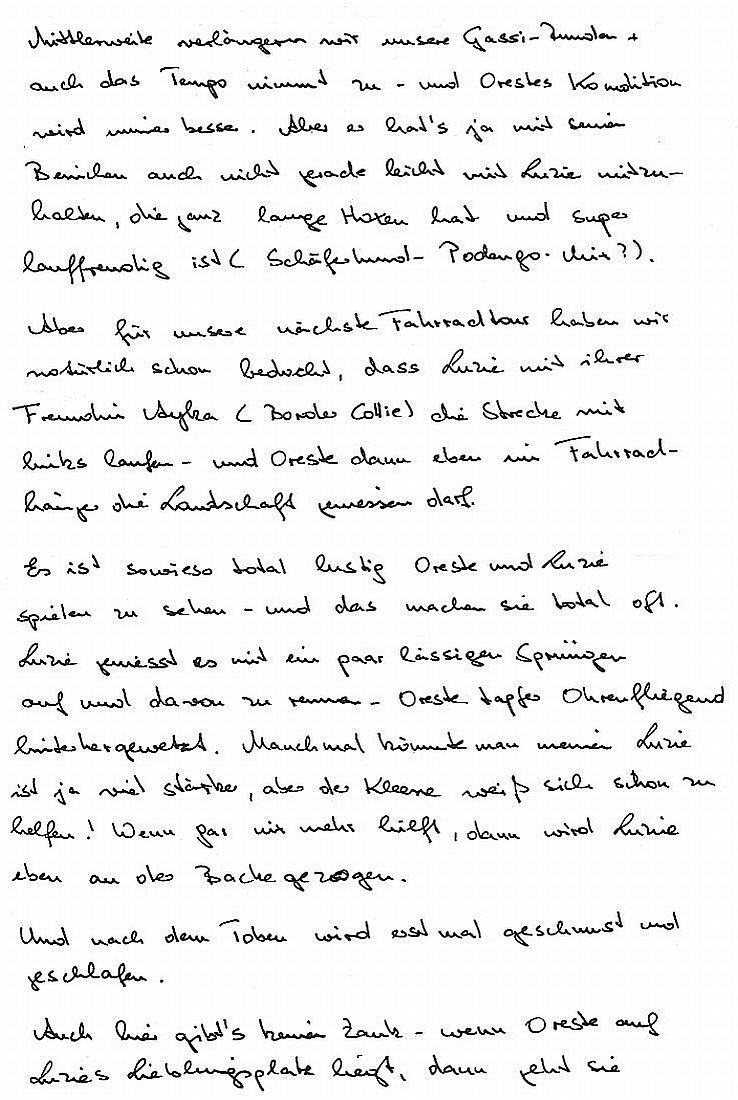 Mittlerweile verlängern wir unsere Gassi-Runden +
auch das Tempo nimmt zu - und Orestes Kondition
wird immer besser. Aber er hat's ja mit seinen
Beinchen auch nicht gerade leicht mit Luzie mitzu-
halten, die ganz lange Haxen hat und super
lauffreudig ist ( Schäferhund- Podengo- Mix?).
Aber für unsere nächste Fahrradtour haben wir
natürlich schon bedacht, dass Luzie mit ihrer
Freundin Ayka ( Border Collie) die Strecke mit
links laufen - und Oreste dann eben im Fahrrad-
hänger die Landschaft genießen darf.
Es ist sowieso total lustig Oreste und Luzie
spielen zu sehen - und das machen sie total oft.
Luzie genießt es mit ein paar lässigen Sprüngen
auf und davon zu rennen - Oreste tapfer Ohrenfliegend
hinterhergewetzt. Manchmal könnte man meinen Luzie
ist ja viel stärker, aber der Kleene weiß sich schon zu
helfen! Wenn gar nix mehr hilft, dann wird Luzie
eben an der Backe gezogen.
Und nach dem Toben wird erst mal geschmust und
geschlafen.
Auch hier gibt's keinen Zank - wenn Oreste auf
Luzies Lieblingsplatz liegt, dann geht sie